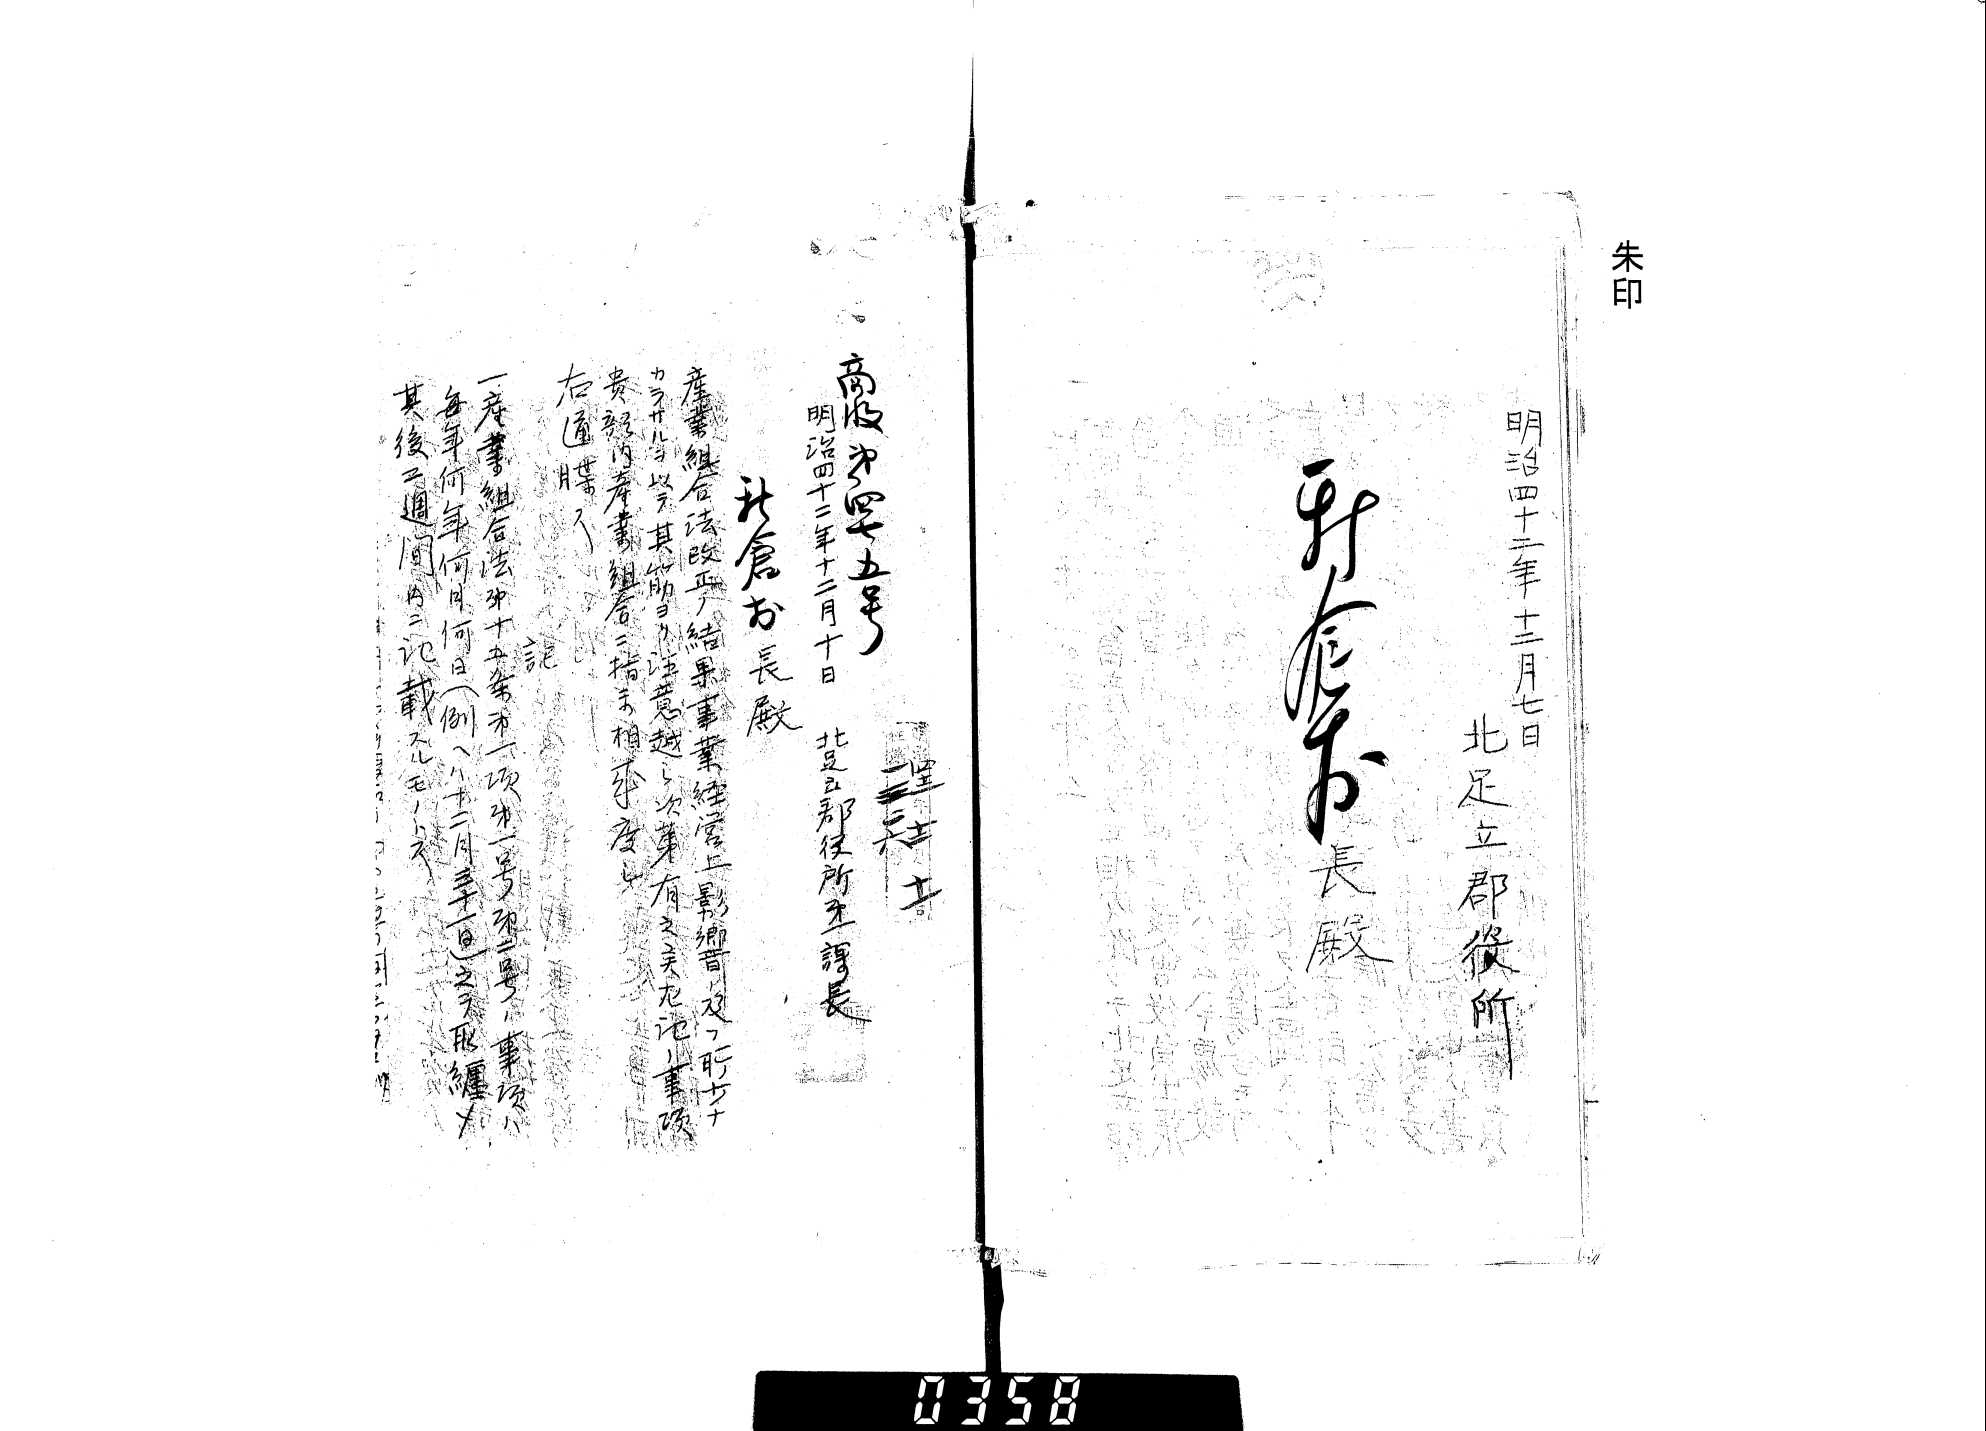 朱印
明治四十二年十二月七日
北足立郡役所
新倉村長殿
商收第四七五号
明治四十二年十二月十日 北足立郡役所第一課長
新倉村長殿
産業組合法改正ノ結果事業経営上影響ノ及フ所少ナ
カラサルヲ以テ其筋ヨリ注意越シ次第有之候左記ノ事項
貴部内産業組合ニ指示相成度
右通牒ス
記
一産業組合法第十五条第一項第一号第二号ノ事項ハ
毎年何年何月何日(例ヘハ十二月三十一日)之ヲ取纏メ
其後二週間内ニ記載スルモノトス
0358